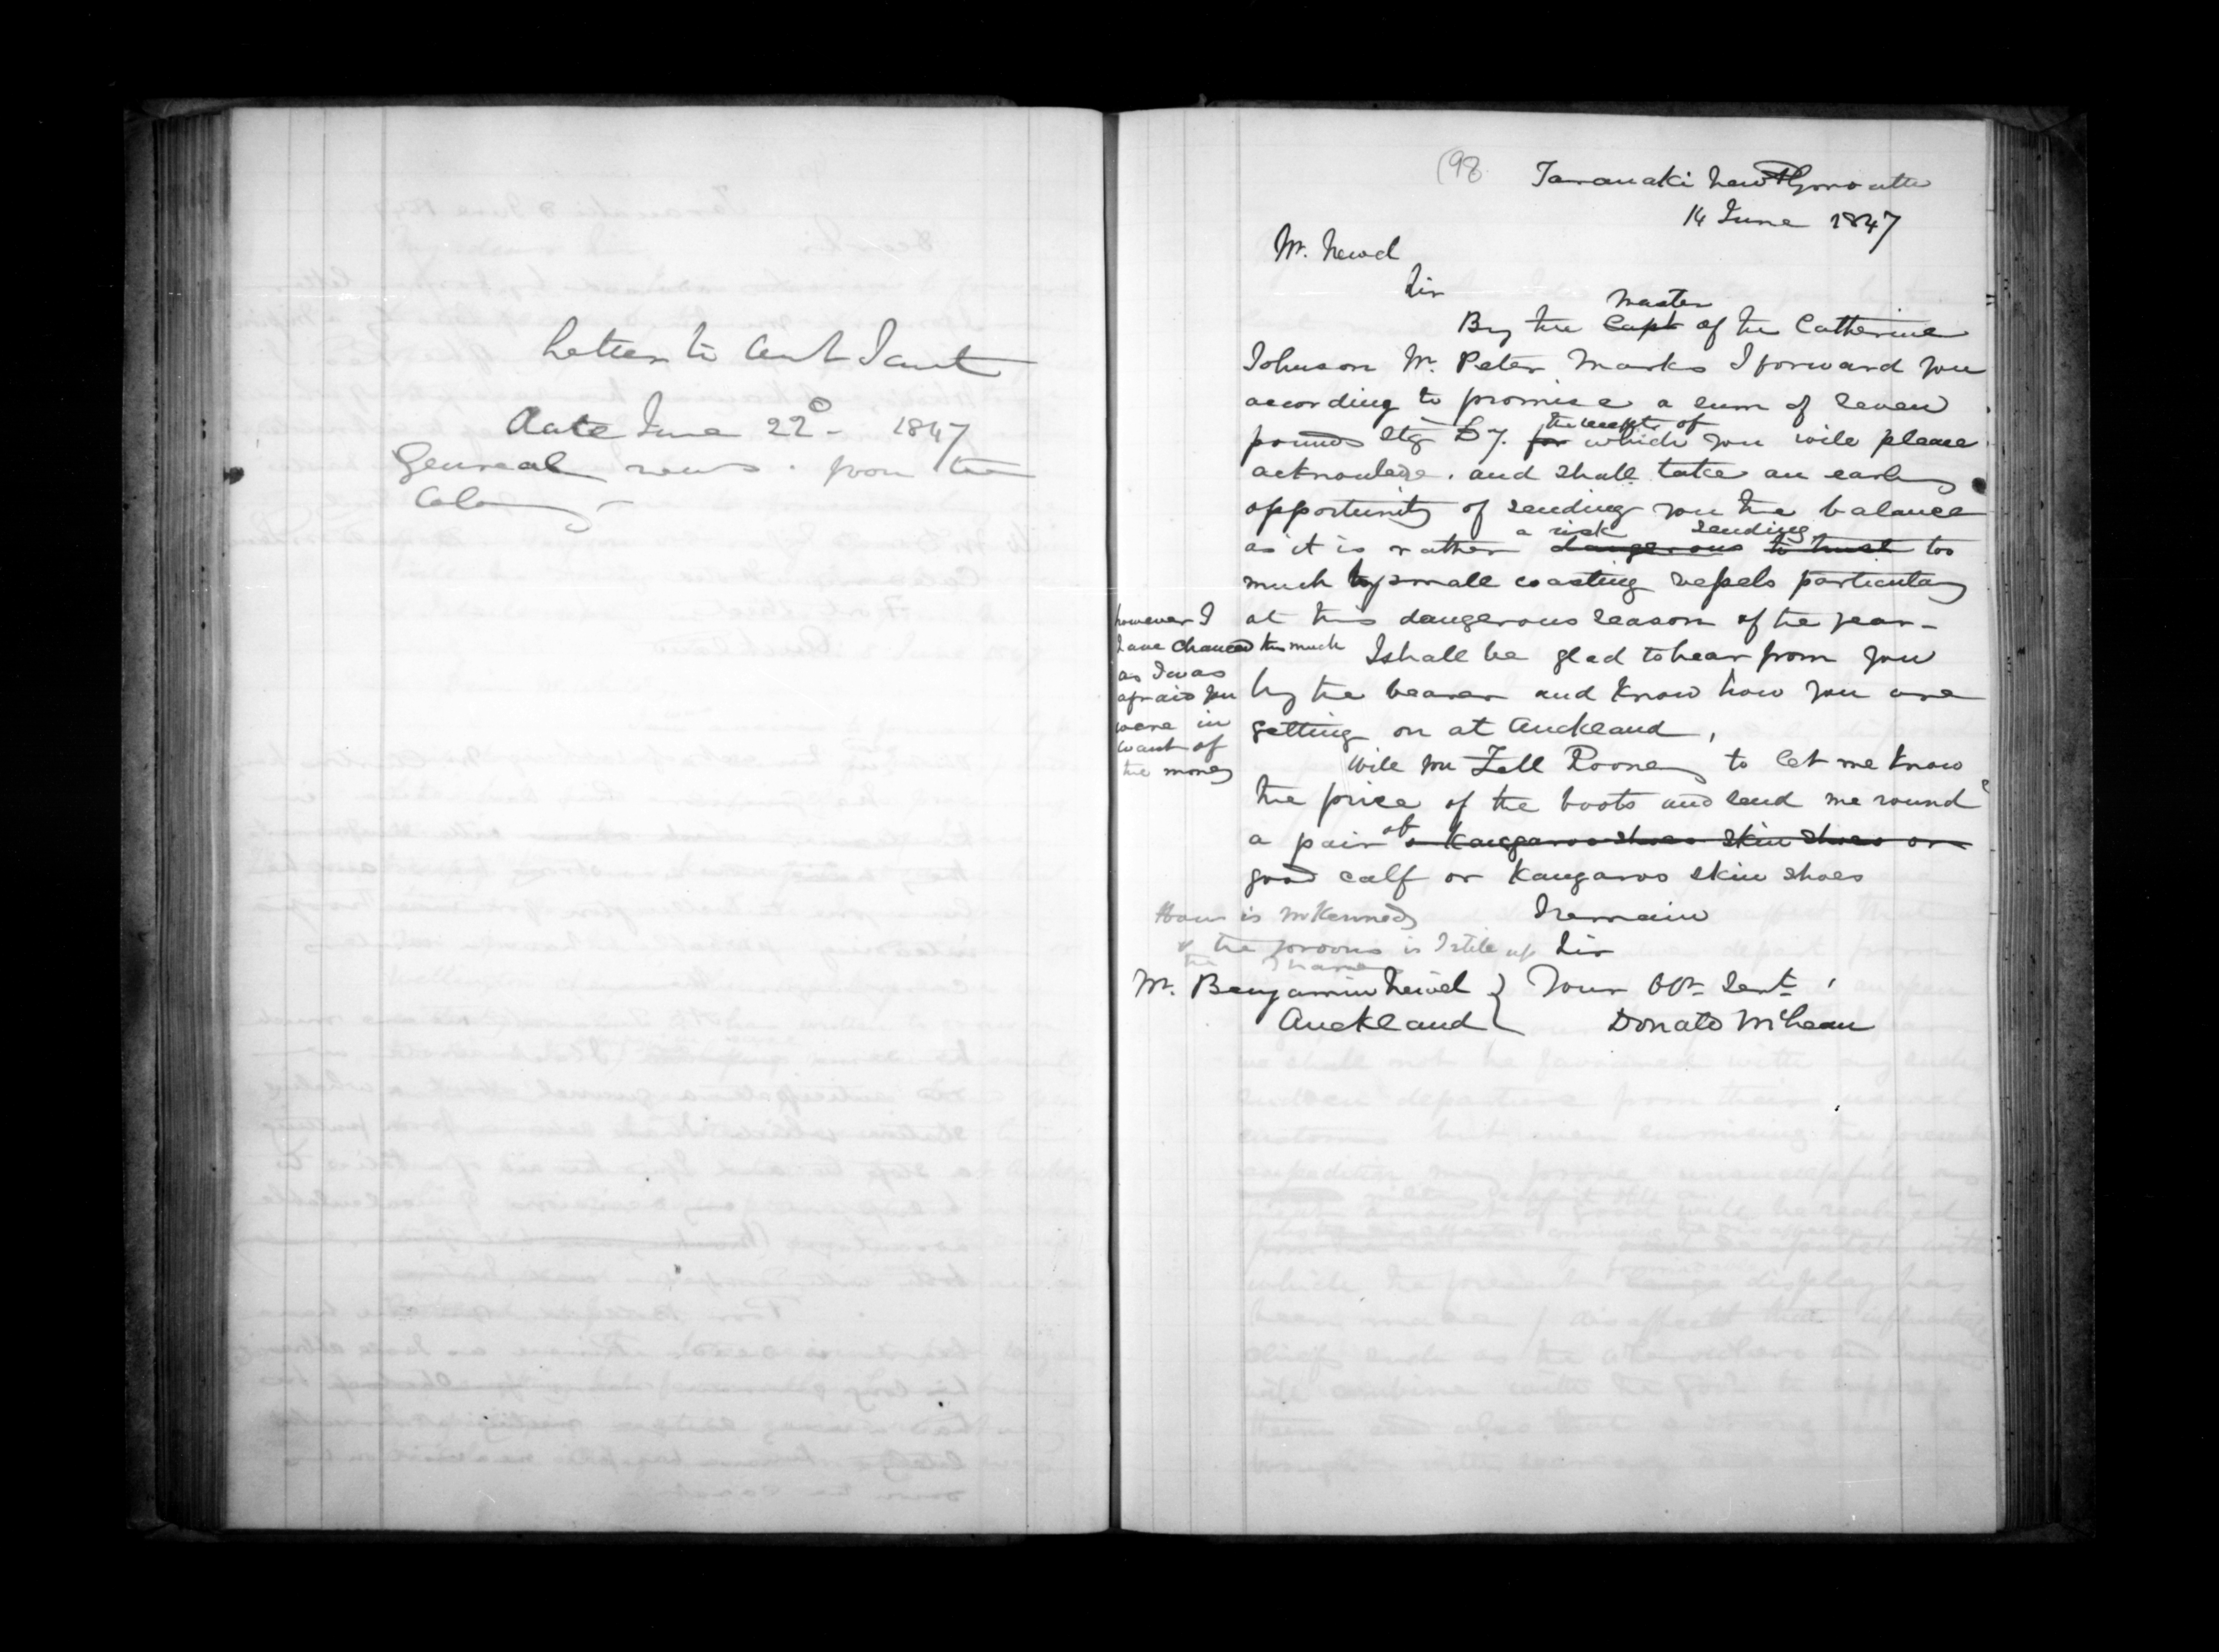 Letter to Aunt Janet
Date June 22D 1847
General news. from the
Colony
(98
Taranaki New Plymouth
14 June 1847
Mr. Newel
Sir
master
By the Capt of the Catherine
Johnson Mr. Peter Marks I forward you
according to promise a sum of seven
the receipt of
pounds Stg £7. for which you will please
acknowledge. and shall take an early
opportunity of sending you the balance
a risk sending
as it is rather dangerous to trust too
much by small coasting vessels particulay
at this dangerous season of the year -
however I
have chanced this much
as I was
afraid you
were in
want of
the money
I shall be glad to hear from you
by the bearer and know how you are
getting on at Auckland,
Will you Tell Rooney to let me know
the price of the boots and send me round
a pair of Kangaroo shoes skin shoes or
good calf or Kangaroo skin shoes
How is McKennedy
& the is I still up
the
I remain
Sir
Mr. Benjamin Newel } Your Obt Sert
Auckland
Donald McLean